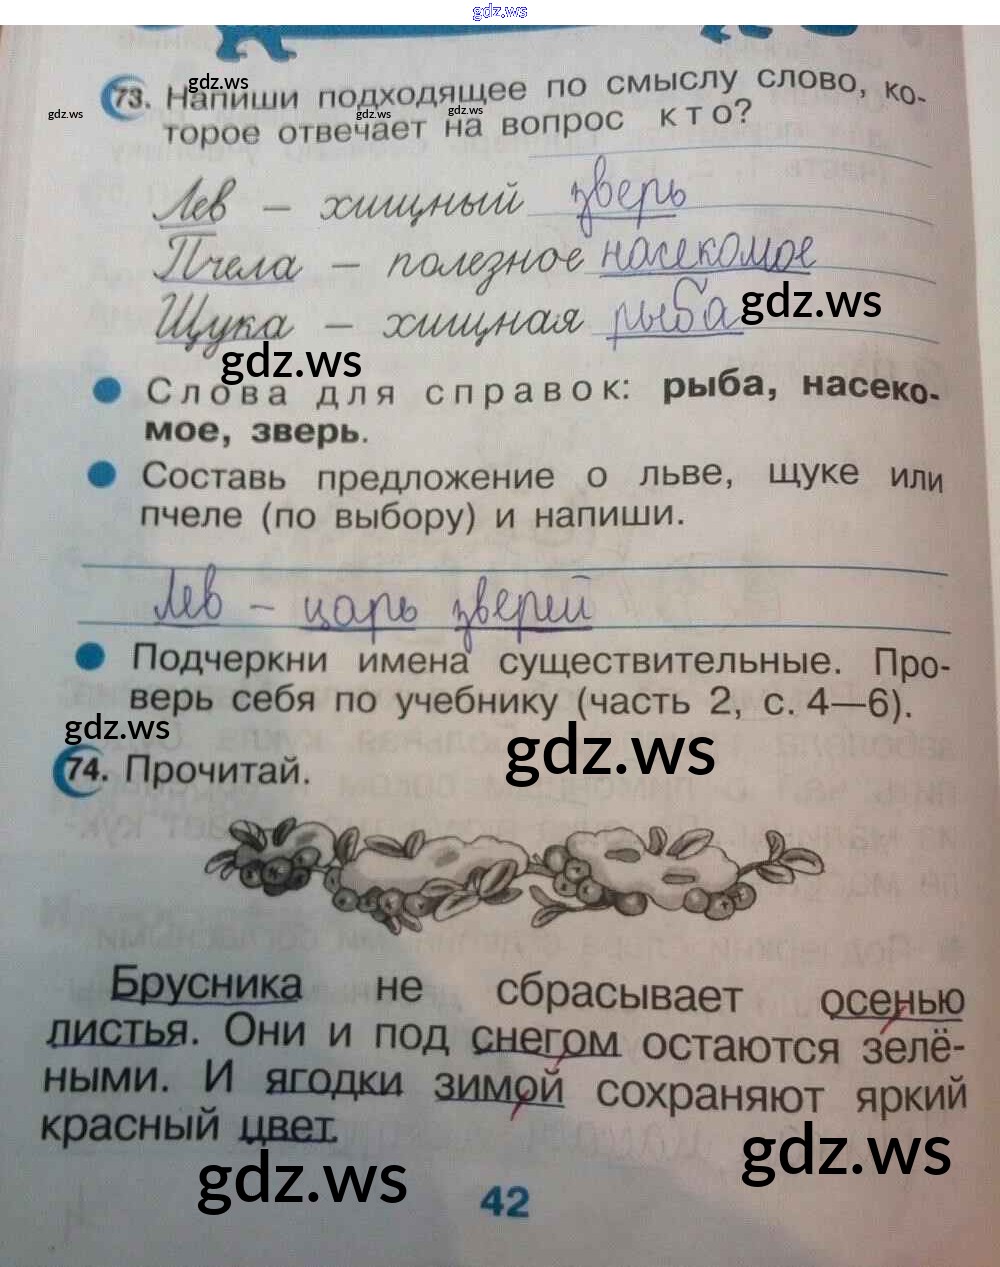 gdz.ws
gdz.ws
73. Напиши подходящее по смыслу слово, ко-
gdz.ws gdz.ws gdz.ws
торое отвечает на вопрос кто?
Лев – хищный зверь
Пчела – полезное насекомое
Щука – хищная рыба
gdz.ws
gdz.ws
Слова для справок: рыба, насеко-
мое, зверь.
Составь предложение о льве, щуке или
пчеле (по выбору) и напиши.
Лев – царь зверей
Подчеркни имена существительные. Про-
верь себя по учебнику (часть 2, с. 4—6).
gdz.ws
gdz.ws
74. Прочитай.
Брусника не сбрасывает осенью
листья. Они и под снегом остаются зелё-
ными. И ягодки зимой сохраняют яркий
красный цвет.
gdz.ws
gdz.ws
42